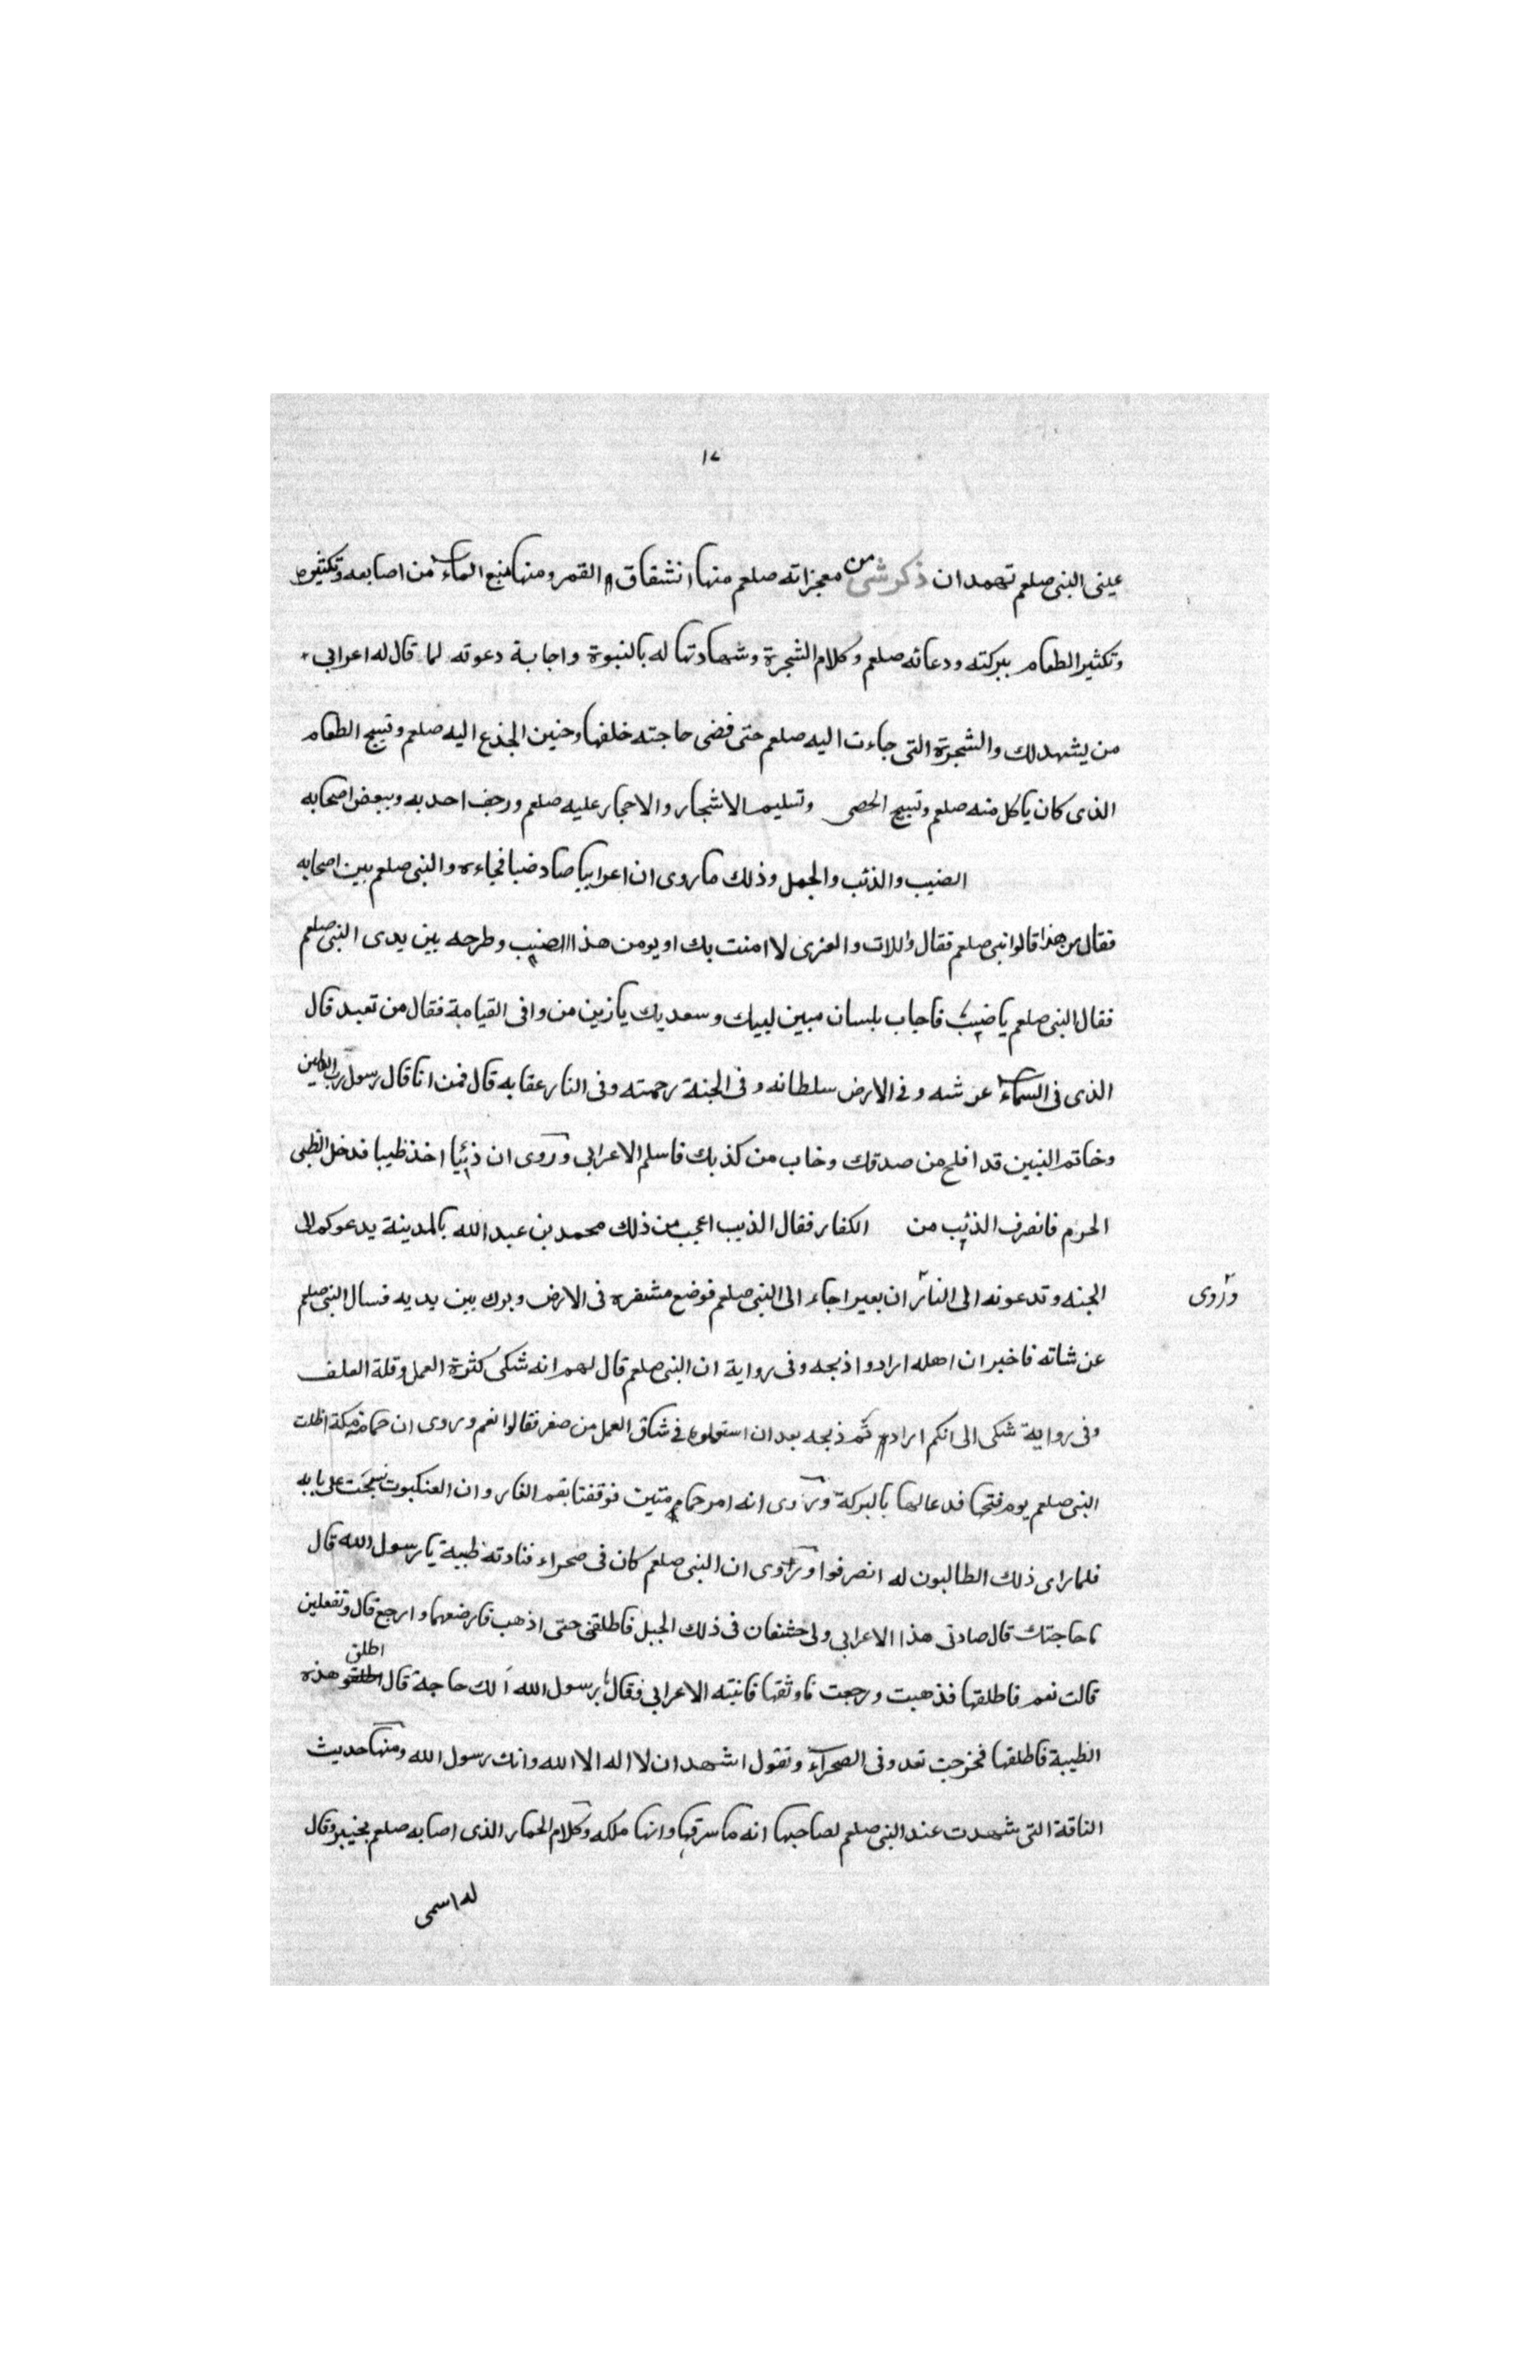 ١٧
عينى النبى صلعم تهمدان ذكر شى من معجزاته صلعم منها انشقاق القمر ومنها منبع الماء من اصابعه وتكثيره
وتكثير الطعام ببركته ودعائه صلعم وكلام الشجرة وشهادتها له بالنبوة واجابة دعوته لما قال له اعرابى
من يشهد لك والشجرة التى جاءت اليه صلعم حتى قضى حاجته خلفها وحنين الجذع اليه صلعم وتسبيح الطعام
الذى كان ياكل منه صلعم وتسبيح الحصى وتسليم الاشجار والاحجار عليه صلعم ورجف احد به وببعض اصحابه
الضبب والذئب والجمل وذلك ما روى ان اعرابيا صاد ضبا فجاءه والنبى صلعم بين اصحابه
فقال من هذا قالوا نبى صلعم فقال واللات والعزى لا امنت بك او يومن هذا الضبب وطرحه بين يدى النبى صلعم
فقال النبى صلعم يا ضبب فاجاب بلسان مبين لبيك وسعديك يا زين من وافى القيامة فقال من تعبد قال
الذى فى السماء عرشه وفى الارض سلطانه وفى الجنة رحمته وفى النار عقابه قال فمن انا قال رسول رب العالمين
وخاتم النبين قد افلح من صدقك وخاب من كذبك فاسلم الاعرابى وروى ان ذئبا اخذ ظبيا فدخل الظبى
الحرم فانصرف الذئب من الكفار فقال الذيب اعجب من ذلك محمد بن عبد الله بالمدينة يدعوكم الى
الجنه وتدعونه الى النار ان بعيرا جاء الى النبى صلعم فوضع مشفره فى الارض وبرك بين يديه فسال النبى صلعم
وروى
عن شانه فاخبر ان اهله ارادوا ذبحه وفى رواية ان النبى صلعم قال لهم انه شكى كثرة العمل وقلة العلف
وفى رواية شكى الى انكم اردتم ذبحه بعد ان استعملوه فى شاق العمل من صغر فقالوا نعم وروى ان حمامة مكة اظلت
النبى صلعم يوم فتحها فدعا لها بالبركة وروى انه امر حمامتين فوقفتا بفم الغار وان العنكبوت نسجت على بابه
فلما راى ذلك الطالبون له انصرفوا وروى ان النبى صلعم كان فى صحراء فنادته ظبية يا رسول الله قال
ما حاجتك قال صادنى هذا الاعرابى ولى خشفان فى ذلك الجبل فاطلقنى حتى اذهب فارضعهما وارجع قال وتفعلين
قالت نعم فاطلقها فذهبت ورجعت فاوثقها فانتبه الاعرابى فقال يا رسول الله الك حاجة قال اطلق هذه
الظبية فاطلقها فخرجت تعدو فى الصحراء وتقول اشهد ان لا اله الا الله وانك رسول الله ومنها حديث
الناقة التى شهدت عند النبى صلعم لصاحبها انه ما سرقها وانها ملكه وكلام الحمار الذى اصابه صلعم بخيبر وقال
له اسمى